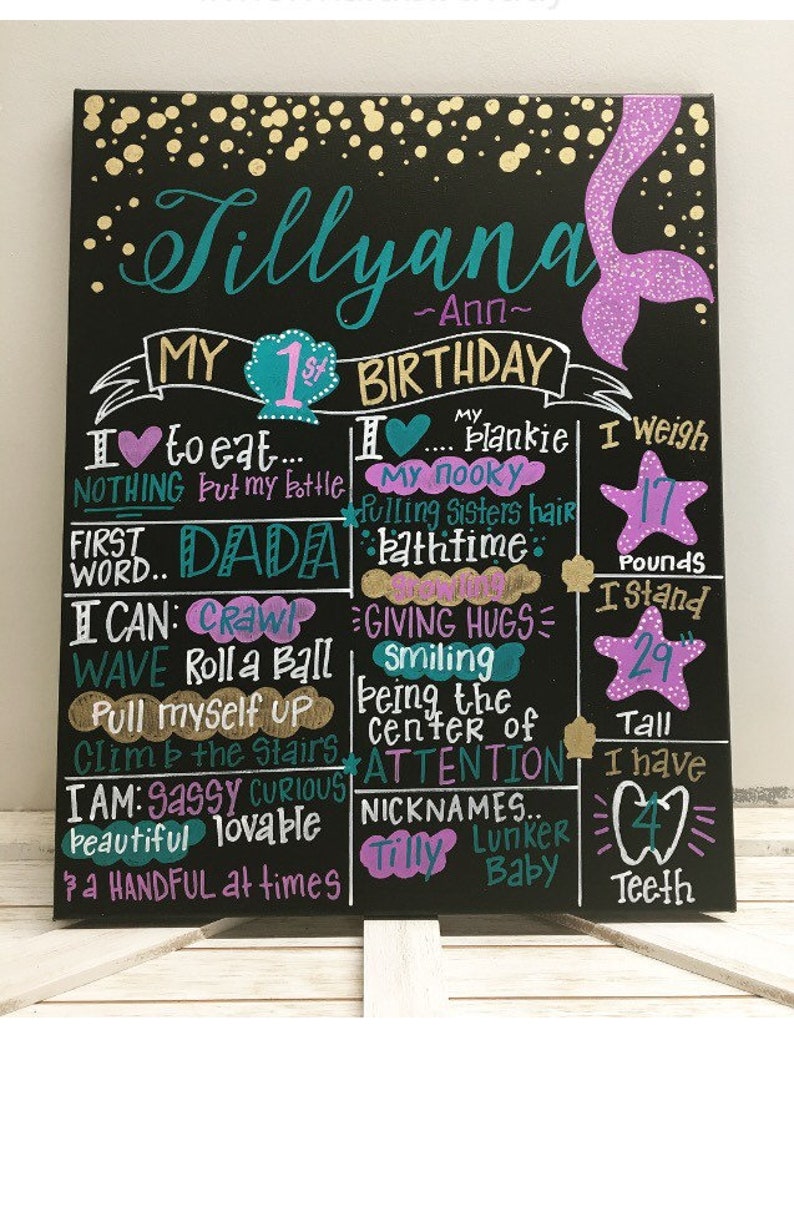 Tillyana
~Ann~
MY 1st BIRTHDAY
I ♥ to eat...
NOTHING but my bottle
FIRST
WORD.. DADA
I CAN: Crawl
WAVE Roll a Ball
Pull myself up
Climb the Stairs
I AM: SASSY CURIOUS
beautiful lovable
& a HANDFUL at times
I ♥ .... MY blankie
MY NOOKY
Pulling Sisters hair
bathtime
growling
GIVING HUGS
smiling
being the
center of
ATTENTION
NICKNAMES..
Tilly Lunker
Baby
I weigh
17
Pounds
I Stand
29"
Tall
I have
4
Teeth